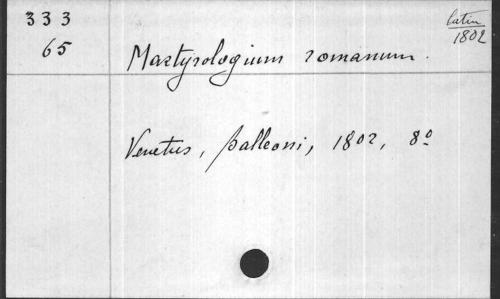 333
65
latin
1802
Martyrologium romanum.
Venetiis, Balleoni, 1802, 8º